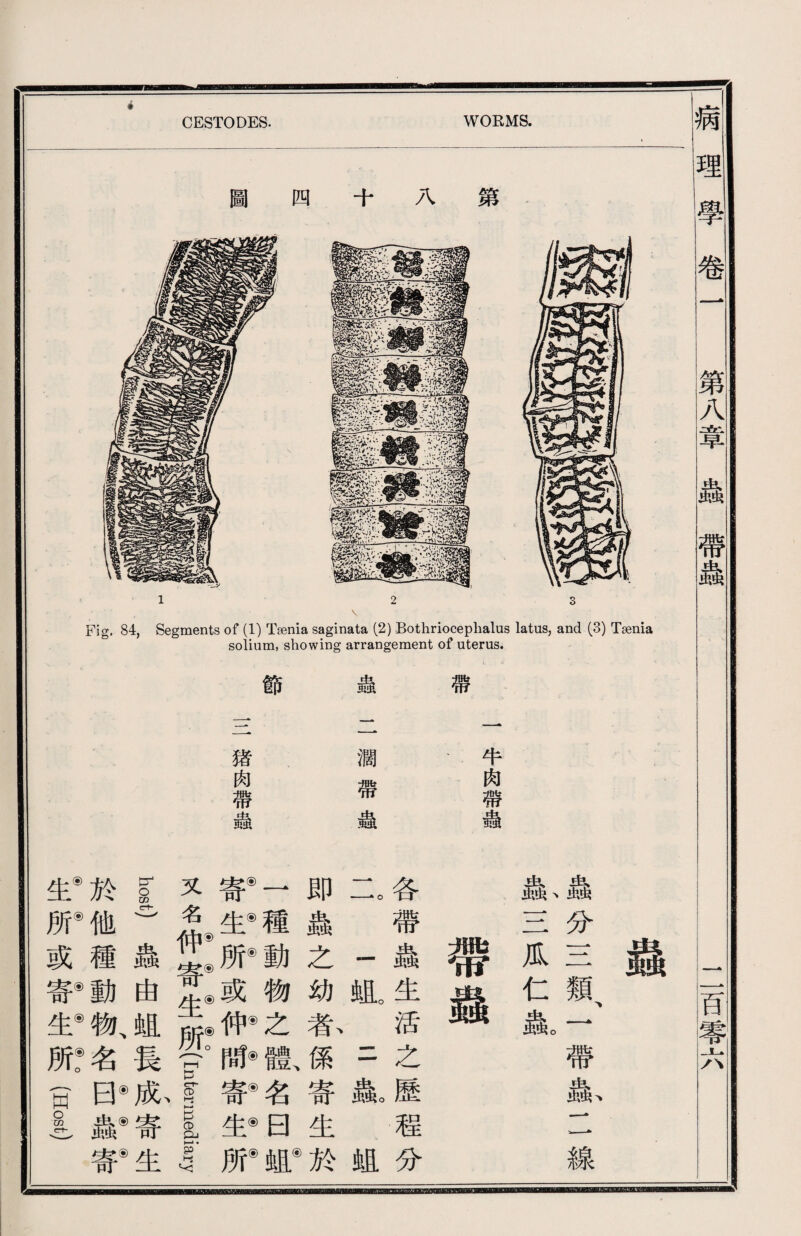 病理學卷一 第八章 蟲 帶蟲 二百零六
CESTODES. WORMS.
第八十四圖
1 2 3
Fig. 84, Segments of (1) Tænia saginata (2) Bothriocephalus latus, and (3) Tænia
solium, showing arrangement of uterus.
帶蟲節
一 牛肉帶蟲
二 濶帶蟲
三 猪肉帶蟲
蟲
蟲分三類、一帶蟲、二線
蟲、三瓜仁蟲。
帶蟲
各帶蟲生活之歷程分
二。一蛆。二蟲。蛆
即蟲之幼者、係寄生於
一種動物之體、名曰蛆
寄生所或仲間寄生所
又名仲寄生所。(Intermediary
host) 蟲由蛆長成、寄生
於他種動物、名曰蟲寄
生所或寄生所。(Host)